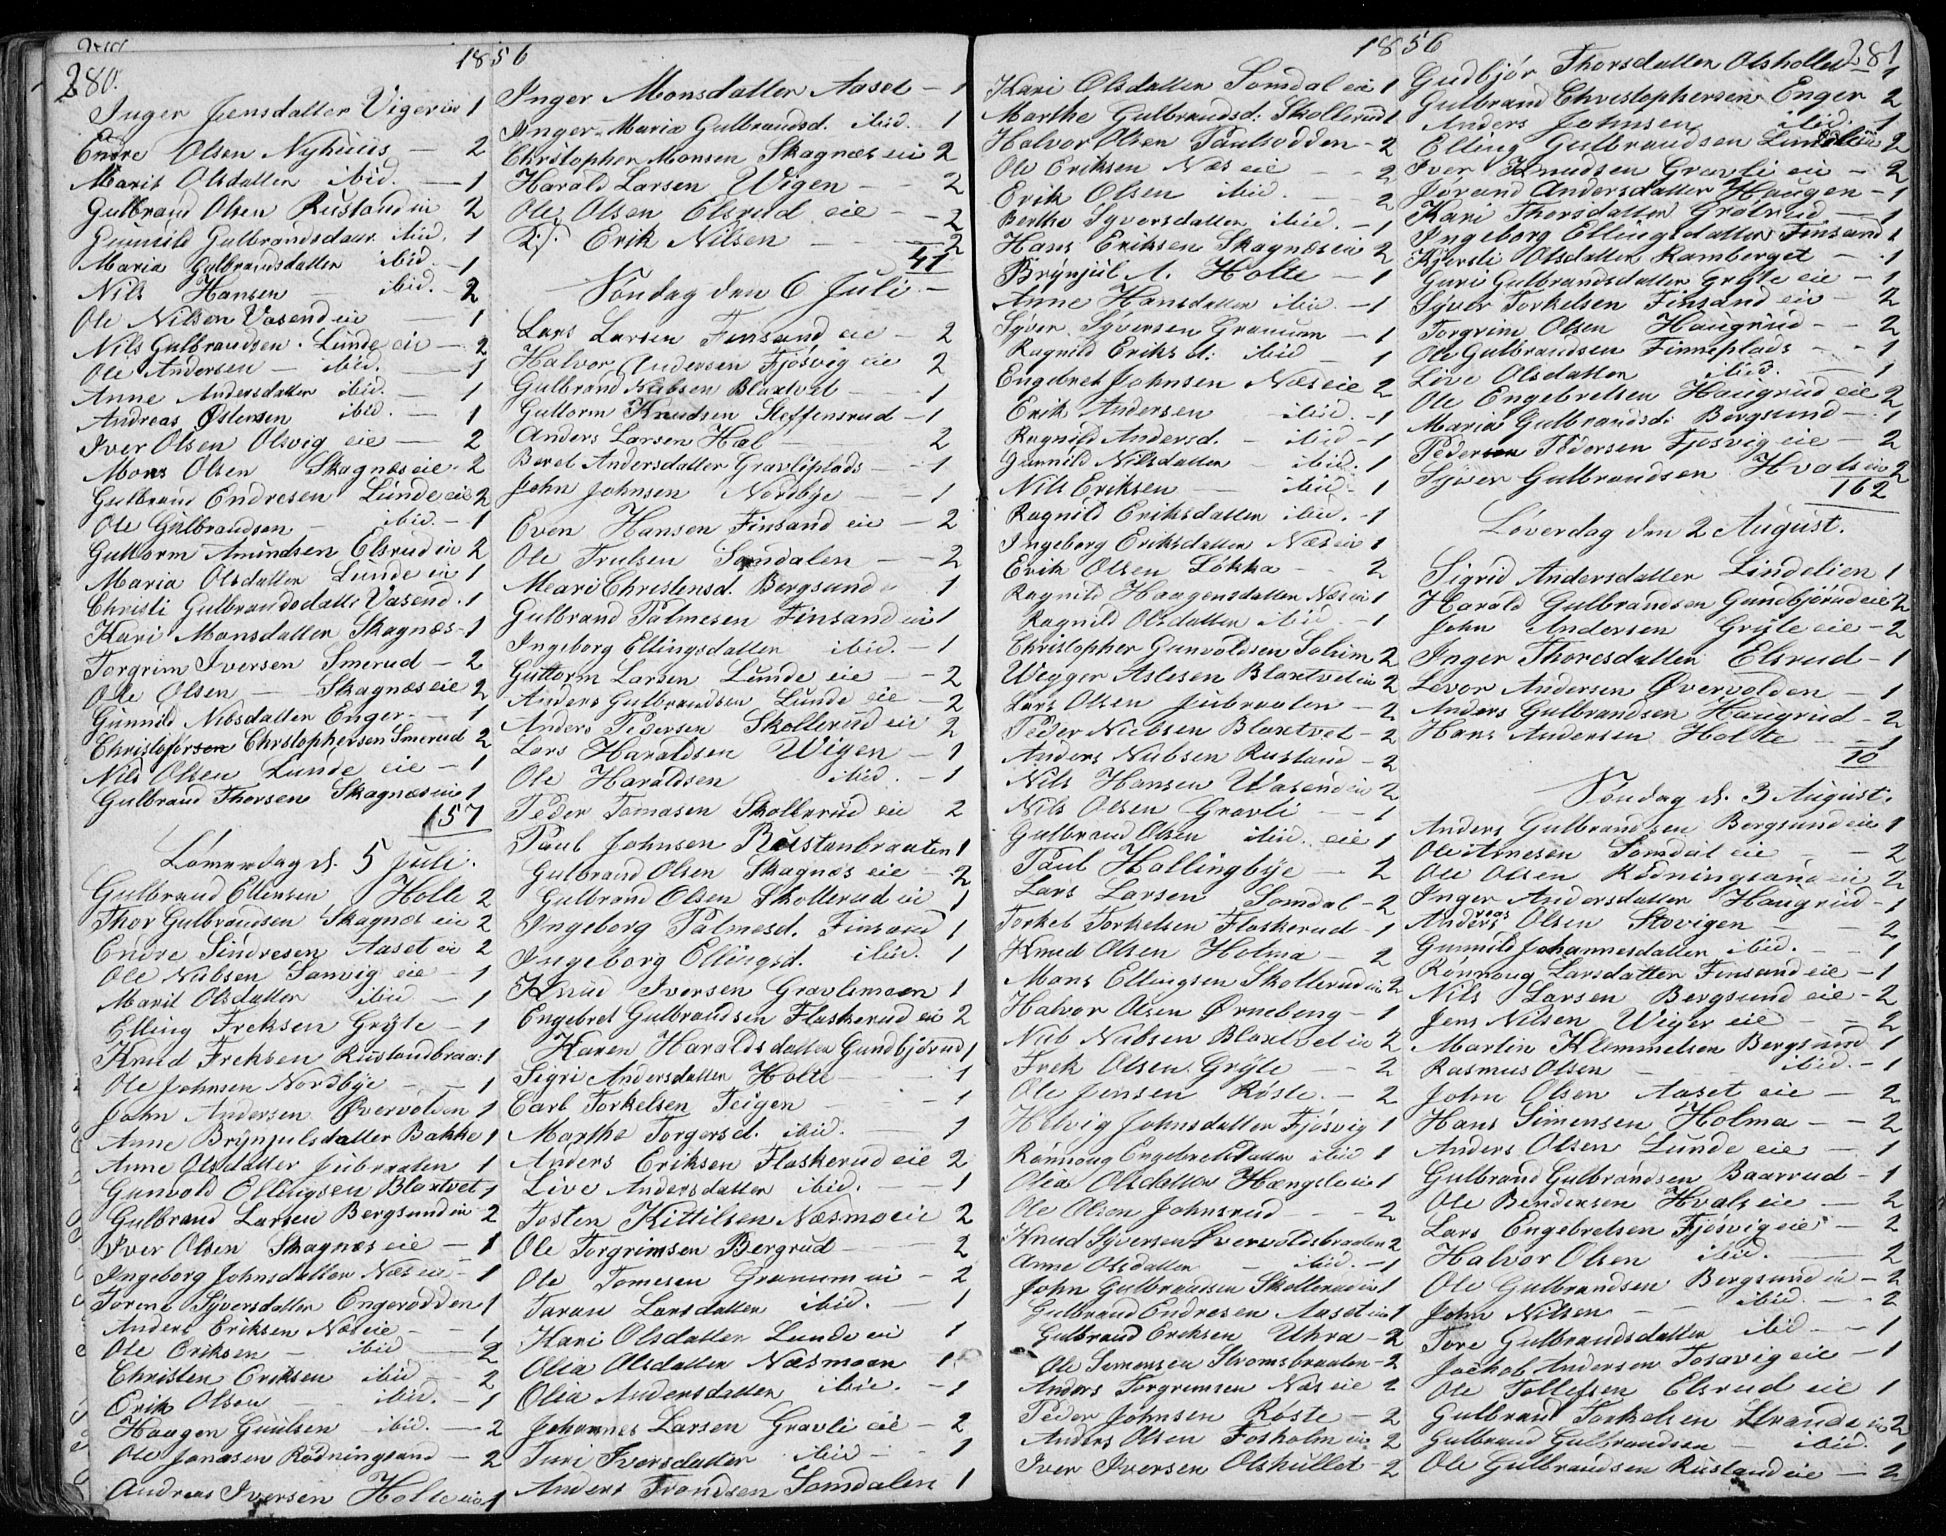 280.
1856
Inger Jensdatter Viger eie 1
Endre Olsen Nyhuus - 2
Marit Olsdatter ibid. - 1
Gulbrand Olsen Rustand ei 2
Gunnild Gulbrandsdatr. ibid. 1
Maria Gulbrandsdatter ibid. - 1
Nils Hansen ibid. - 2
Ole Nilsen Vasend eie - 1
Nils Gulbrandsen Lunde eie - 2
Ole Andersen - ibid. - 1
Anne Andersdatter ibid. - 1
Andreas Østensen ibid. - 1
Iver Olsen Olsvig eie - 2
Mons Olsen Skagnæs eie - 2
Gulbrand Endresen Lunde eie 2
Ole Gulbrandsen - ibid. - 1
Guttorm Amundsen Elsrud ei 2
Maria Olsdatter Lunde ei 1
Christi Gulbrandsdatter Vasend. 1
Kari Monsdatter Skagnæs - 1
Torgrim Iversen Smerud - 2
Ole Olsen - Skagnæs eie 2
Gunnild Nilsdatter Enger - 1
Christophersen Smerud 2
Nils Olsen Lunde eie - 1
Gulbrand Thorsen Skagnæs eie 1
157
Løverdag d. 5 Juli.
Gulbrand Ellensen Holte 2
Thor Gulbrandsen Skagnæs eie 2
Endre Sindresen Aaset ei 2
Ole Nubsen Sanvig eie - 1
Marit Olsdatter ibid - 1
Elling Freksen Gryte - 1
Knud Freksen Rustandbraa: 1
Ole Johnsen Nordbye - - 1
John Andersen Øvervolden 1
Anne Brynjulsdatter Bakke 1
Anne Olsdatter Jubraaten 1
Gunvold Ellingsen Blaxtvet 1
Gulbrand Larsen Bergsund ei - 2
Iver Olsen Skagnæs eie - 1
Ingeborg Johnsdatter Næs ei - 1
Torene Syversdatter Engerodden 1
Anders Eriksen Næs eie - 1
Ole Eriksen - ibid - 2
Christen Eriksen ibid - 2
Erik Olsen - ibid. - 1
Haagen Guulsen ibid. - 2
Ole Jonasen Rødningsand - 2
Andreas Iversen Holte eie 1
Inger Monsdatter Aaset - 1
Inger Maria Gulbrandsd. ibid. - 1
Christopher Monsen Skagnæs eie 2
Harald Larsen Wigen - - 2
Ole Olsen Elsrud eie - - 2
Erik Nilsen - - - 2
41
Søndag den 6 Juli -
Lars Larsen Finsand eie 2
Halvor Andersen Fjøsvig eie 2
Gulbrand Nubsen Blaxtvet - - 1
Guttorm Knudsen Steffensrud - 1
Anders Larsen Hal - 2
Beret Andersdatter Gravliplads - - 1
John Johnsen Nordbye - 1
Even Hansen Finsand eie - 2
Ole Trulsen Somdalen - - 2
Meari Christensd. Bergsund 1
Gulbrand Palmesen Finsand eie 1
Ingeborg Ellingsdatter ibid. - 1
Guttorm Larsen Lunde eie - 2
Anders Gulbrandsen Lunde eie - 2
Anders Pedersen Skollerud eie 2
Lars Haraldsen Wigen - 1
Ole Haraldsen ibid. - 1
Peder Tomasen Skollerud eie 2
Paul Johnsen Rustanbraaten 1
Gulbrand Olsen Skagnæs eie - 2
Gulbrand Olsen Skollerud ei 1
Ingeborg Palmesd. Finsand 1
Ingeborg Ellingsd. ibid. 1
Knud Iversen Gravlimoen 1
Engebret Gulbrandsen Flaskerud eie 2
Karen Haraldsdatter Gundbjørud 1
Sigri Andersdatter Holte - 1
Carl Torkelsen Teigen - 1
Marthe Torgersd. ibid. 1
Anders Eriksen Flaskerud eie 2
Live Andersdatter ibid. - 1
Tosten Kittilsen Næsmo eie 2
Ole Torgrimsen Bergrud - 2
Ole Tomesen Granum ei - 2
Taran Larsdatter ibid. - 1
Kari Olsdatter Lunde ei 1
Olea Olsdatter Næsmoen 1
Olea Andersdatter ibid. - 1
Johannes Larsen Gravli eie - 2
Turi Iversdatter ibid - 1
Anders Trondsen Somdalen 1
1856
281
Kari Olsdatter Somdal eie 1
Marthe Gulbrandsd: Skollerud 1
Halvor Olsen Paulsodden - 2
Ole Eriksen Næs eie - 2
Erik Olsen ibid. - 2
Berthe Syversdatter ibid. - 1
Hans Eriksen Skagnæs eie 2
Brynjul A. Holte - 1
Anne Hansdatter ibid - 1
Syver Syversen Granum - 1
Ragnild Eriksd: ibid - 1
Engebret Johnsen Næs eie 2
Erik Andersen ibid. - 1
Ragnild Andersd. - ibid - 1
Gunnild Nilsdatter - ibid. 1
Nils Eriksen - ibid. 1
Ragnild Eriksdatter ibid. - 1
Ingeborg Eriksdatter Næs ei 1
Erik Olsen Løkka - 2
Ragnild Haagensdatter Næs ei 1
Ragnild Olsdatter ibid - 1
Christopher Gunvoldsen Solum 2
Wegger Aslesen Blaxtvet ei 2
Lars Olsen Jubraaten - 2
Peder Nubsen Blaxtvet - 2
Anders Nubsen Rustand - 2
Nils Hansen Wasend ei 2
Nils Olsen Gravli - 1
Gulbrand Olsen ibid. eie 1
Paul Hallingbye - 2
Lars Larsen Somdal - 2
Torkel Torkelsen Flaskerud - 1
Knud Olsen Holma - 2
Mons Ellingsen Skollerud ei 2
Halvor Olsen Ørneberg - 1
Nub Nubsen Blaxtvet ei 2
Frek Olsen Gryte - - 2
Ole Jensen Røste - 2
Helvig Johnsdatter Fjøsvig 1
Rønnoug Engebretsdatter ibid 1
Olea Olsdatter Hængsle ei 1
Ole Olsen Johnsrud - - 2
Knud Syversen Øvervoldsbraaten 2
Anne Olsdatter - ibid. - 1
John Gulbrandsen Skollerud ei 1
Gulbrand Endresen Aaset ei 1
Gulbrand Ericksen Uhra - 2
Ole Semensen Stromsbraaten - 2
Anders Torgrimsen Næs eie 2
Peder Johnsen Røste - 2
Anders Olsen Fosholm ei - 2
Iver Iversen Olshullet - 2
Gudbjør Thorsdatter Olshollet 1
Gulbrand Christophersen Enger 2
Anders Johnsen ibid. 1
Elling Gulbrandsen Lindelien 2
Iver Knudsen Gravli eie - 2
Jorand Andersdatter Haugen - 1
Kari Thorsdatter Grøtrud - 1
Ingeborg Ellingsdatter Finsand 1
Kjersti Olsdatter Ramberget - 1
Guri Gulbrandsdatter Gryte eie - 1
Syver Torkelsen Finsand eie - 2
Torgrim Olsen Haugrud - - 2
Ole Gulbrandsen Finneplads - - 1
Live Olsdatter ibid. - 1
Ole Engebretsen Haugrud eie 2
Maria Gulbrandsd: Bergsund - 1
Pedersen Pedersen Fjøsvig eie - 2
Syver Gulbrandsen Hvals eie 2
162
Løverdag den 2 August.
Sigrid Andersdatter Lindelien 1
Harald Gulbrandsen Gundbjørud eie 2
John Andersen Gryte eie - 2
Inger Thoresdatter Elsrud - 1
Levor Andersen Øvervolden - 1
Anders Gulbrandsen Haugrud - 2
Hans Andersen Holte - 1
10
Søndag d. 3 August.
Anders Gulbrandsen Bergsund eie 1
Ole Arnesen Somdal eie - 2
Ole Olsen Rødningsand eie 2
Inger Andersdatter Haugrud - 1
Andreas Olsen Stovigen - - 2
Gunnild Johannesdatter ibid. - 1
Rønnoug Larsdatter Finsand eie - 1
Nils Larsen Bergsund eie - 2
Jens Nilsen Wiger eie - - 2
Martin Klemmetsen Bergsund 1
Rasmus Olsen - ibid. - 1
John Olsen Aaset eie - 2
Hans Simensen Holma - - 2
Anders Olsen Lunde eie - 1
Gulbrand Gulbrandsen Baarrud - 1
Ole Bendixsen Hvals eie - 2
Lars Engebretsen Fjøsvig eie - 2
Halvor Olsen ibid. - 2
Ole Gulbrandsen Bergsund ei - 2
John Nilsen - ibid. - 2
Tore Gulbrandsdatter ibid - - 1
Jackob Andersen Tosavig eie - 1
Ole Tollefsen Elsrud eie 1
Gulbrand Torkelsen Strande ei 2
Gulbrand Gulbrandsen - ibid. 1
Ole Gulbrandsen Rustand eie - 2